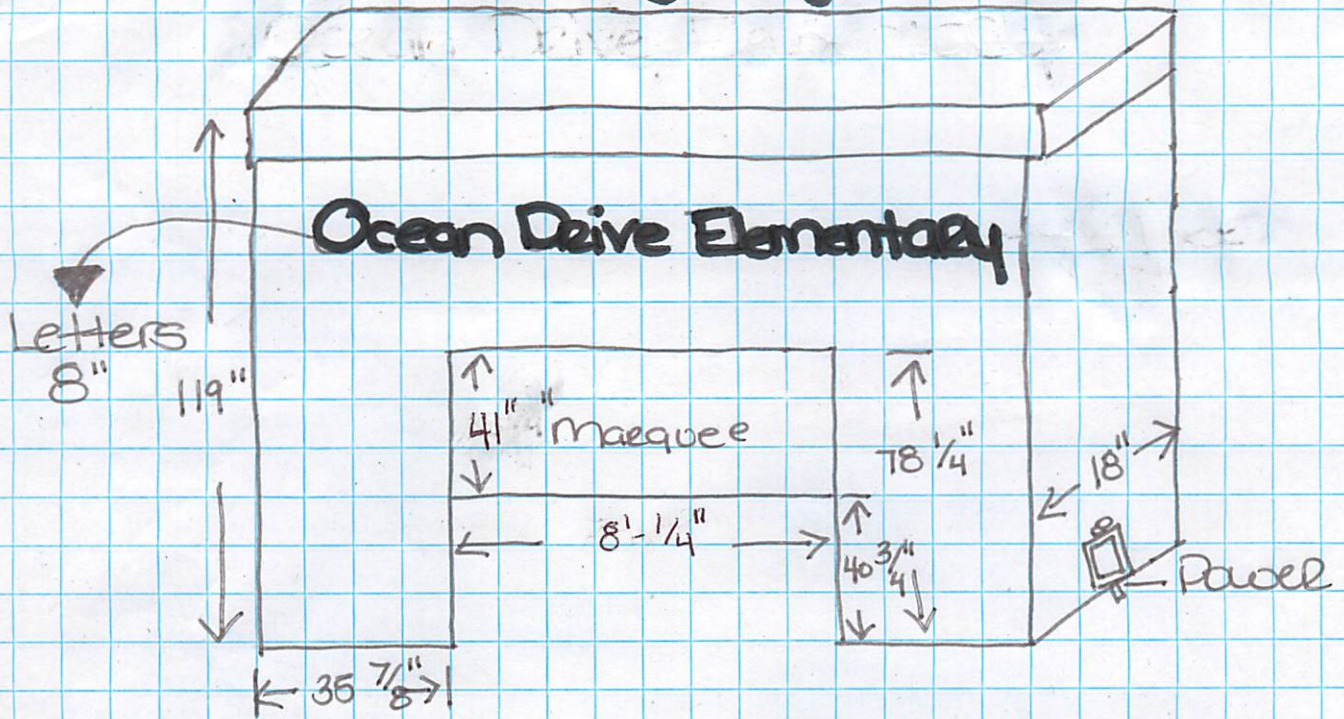 Ocean Drive Elementary
Letters
8"
119"
41"
"Marquee
78 1/4"
18"
8'-1/4"
40 3/4"
Power
35 7/8"